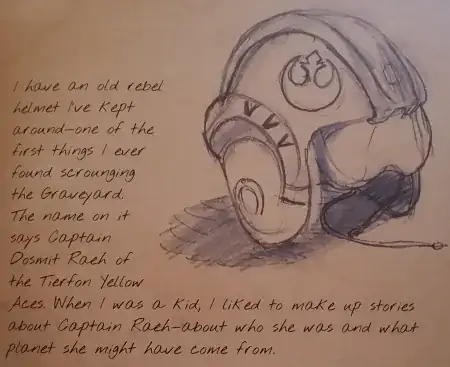 I have an old rebel
helmet I've kept
around—one of the
first things I ever
found scrounging
the Graveyard.
The name on it
says Captain
Dosmit Raeh of
the Tierfon Yellow
Aces. When I was a kid, I liked to make up stories
about Captain Raeh—about who she was and what
planet she might have come from.